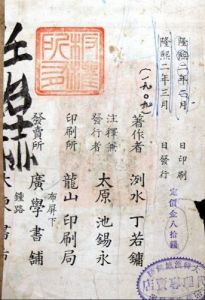 隆熙二年三月 日印刷
隆熙二年三月 日發行
定價金八拾錢
(一九〇九)
著作者 洌水 丁若鏞
注釋兼
發行者 太原 池錫永
印刷所 龍山印刷局
布屏下
發賣所 廣學書舖
鍾路
大東書市